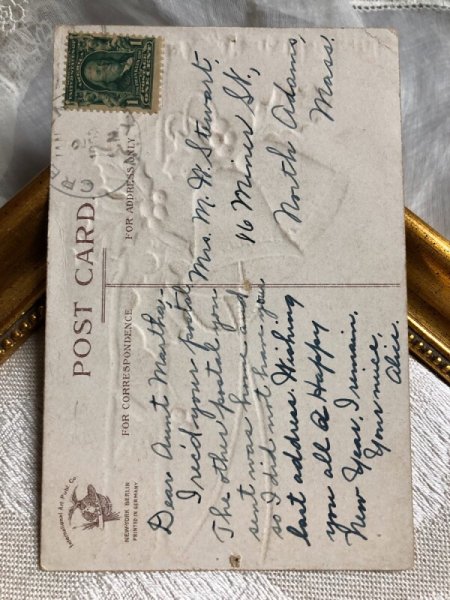 POST CARD
FOR CORRESPONDENCE
FOR ADDRESS ONLY
International Art Publ. Co.
NEW-YORK BERLIN
PRINTED IN GERMANY
Dear Aunt Martha,-
I rec'd your postal.
The other postal you
sent was home and
so I did not have your
last address. Wishing
you all a Happy
New Year, I remain,
Your niece,
Alice.
Mrs. M. W. Stewart,
16 Miner St.,
North Adams,
Mass.